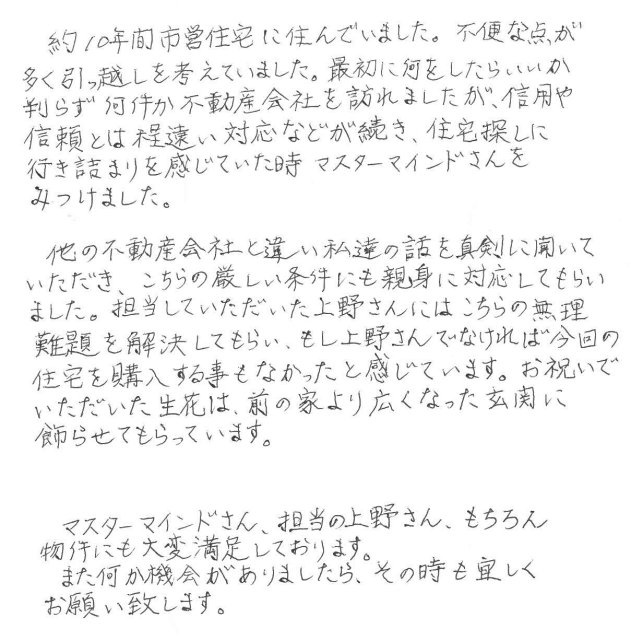 約10年間市営住宅に住んでいました。不便な点が
多く引っ越しを考えていました。最初に何をしたらいいか
判らず何件か不動産会社を訪れましたが、信用や
信頼とは程遠い対応などが続き、住宅探しに
行き詰まりを感じていた時マスターマインドさんを
みつけました。
他の不動産会社と違い私達の話を真剣に聞いて
いただき、こちらの厳しい条件にも親身に対応してもらい
ました。担当していただいた上野さんにはこちらの無理
難題を解決してもらい、もし上野さんでなければ今回の
住宅を購入する事もなかったと感じています。お祝いで
いただいた生花は、前の家より広くなった玄関に
飾らせてもらっています。
マスターマインドさん、担当の上野さん、もちろん
物件にも大変満足しております。
また何か機会がありましたら、その時も宜しく
お願い致します。